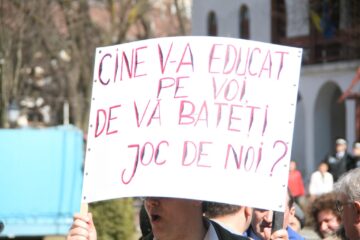 CINE V-A EDUCAT
PE VOI
DE VĂ BATEȚI
JOC DE NOI?